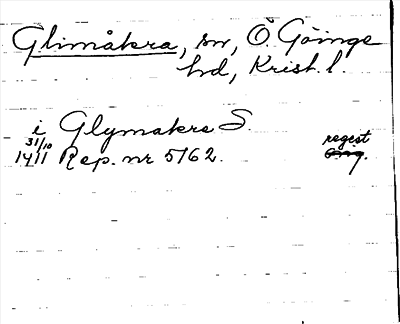 Glimåkra, sn, Ö. Göinge
hd, Krist. l.
i Glymakre S.
31/10 1411 Rep. nr 5162. regest
Orig.